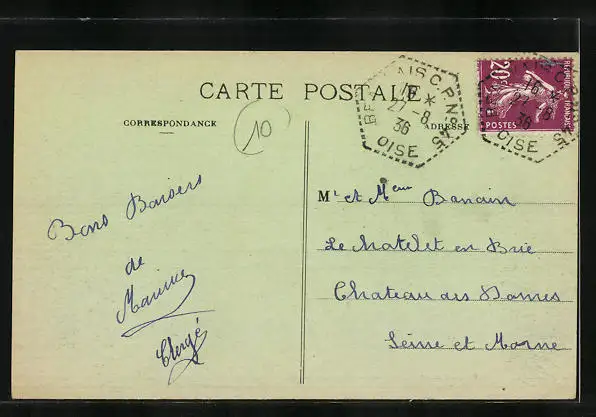 CARTE POSTALE
CORRESPONDANCE
ADRESSE
10
BEAUVAIS C.P. N°45
16 *
27-8
36
OISE
20c
REPUBLIQUE FRANÇAISE
POSTES
Bons Baisers
de
Maurice
Clergé
Mr et Meur Banain
Le Chatelet en Brie
Chateau des Dames
Seine et Marne